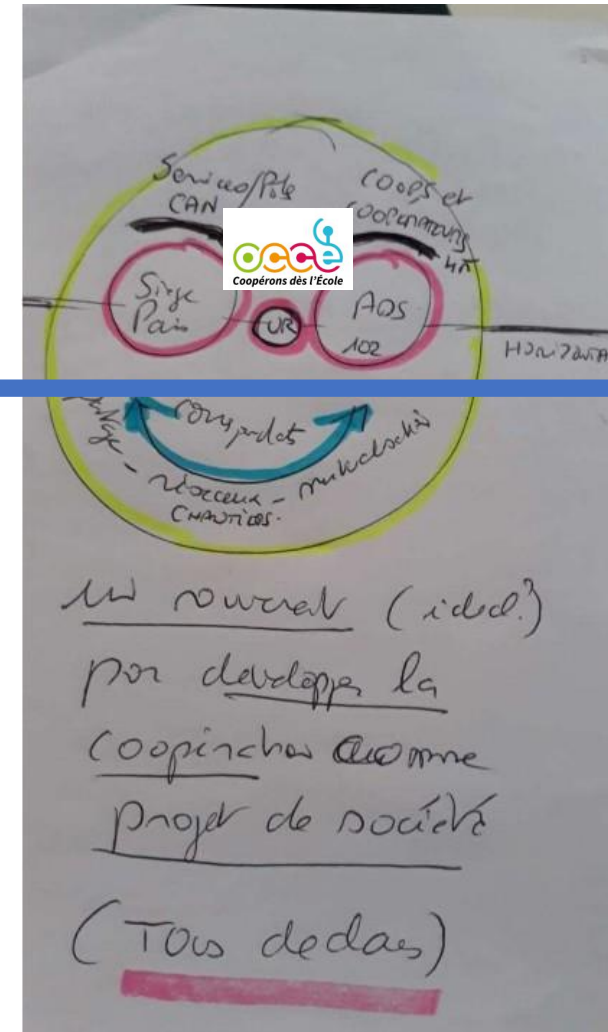 Services/Pôle
CAN
Coops et
coopérateurs
occe
Coopérons dès l'École
Siège
UR
ADS
102
HORIZONTA
réseaux - mutualisation
CHANTIERS.
un (idéal?)
pour développer la
coopération comme
projet de société
(Tous dedans)